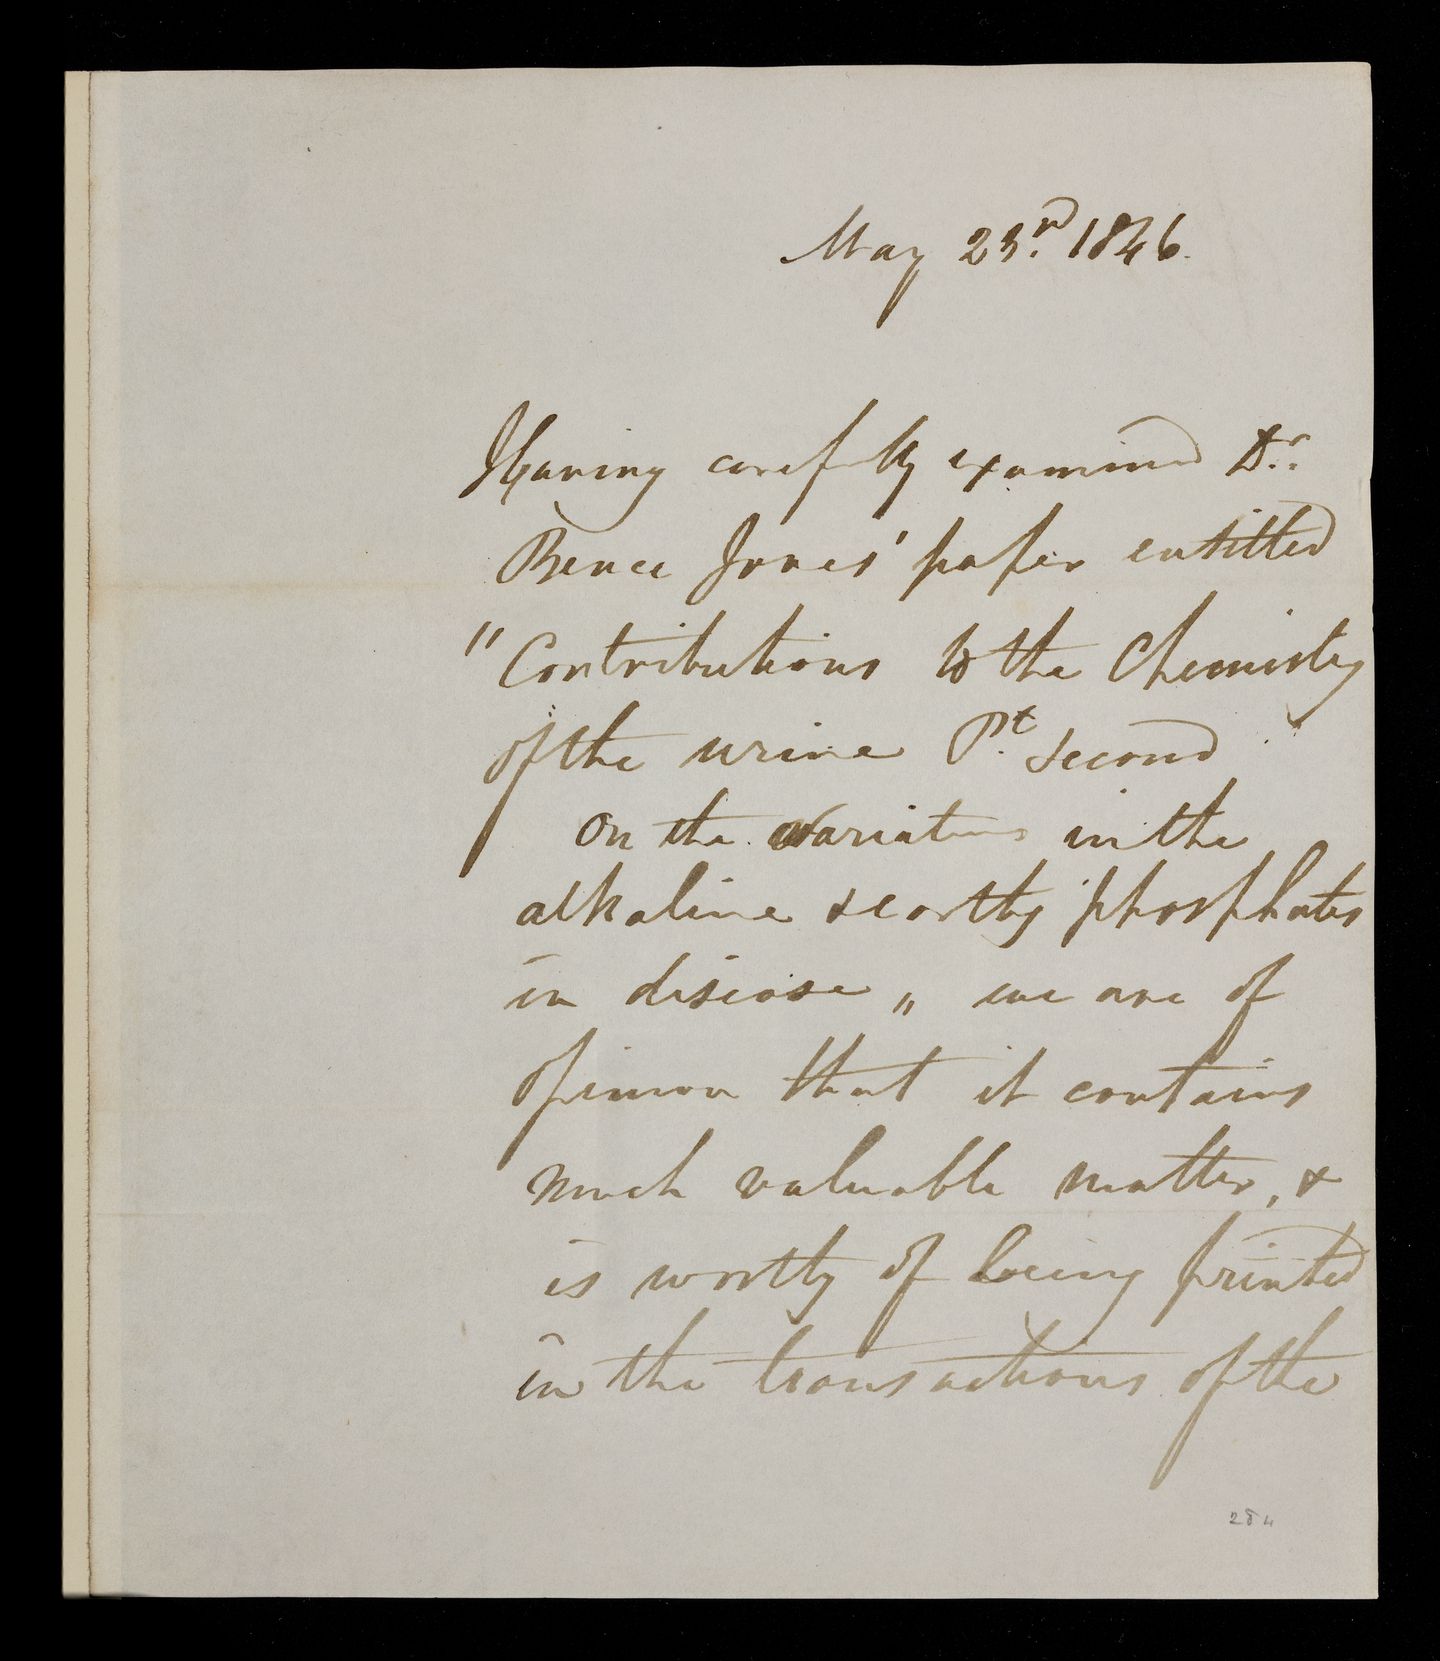 May 23rd. 1846.
Having carefully examined Dr.
Bence Jones' paper entitled
"Contributions to the Chemistry
of the urine Pt. second
On the variations in the
alkaline & earthy phosphates
in disease" we are of
opinion that it contains
much valuable matter, &
is worthy of being printed
in the transactions of the
284